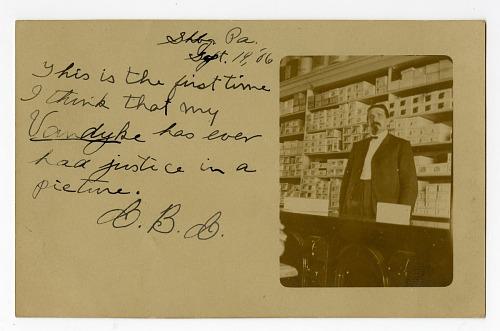 Shbg. Pa.
Sept. 18, '06
This is the first time
I think that my
Vandyke has ever
had justice in a
picture.